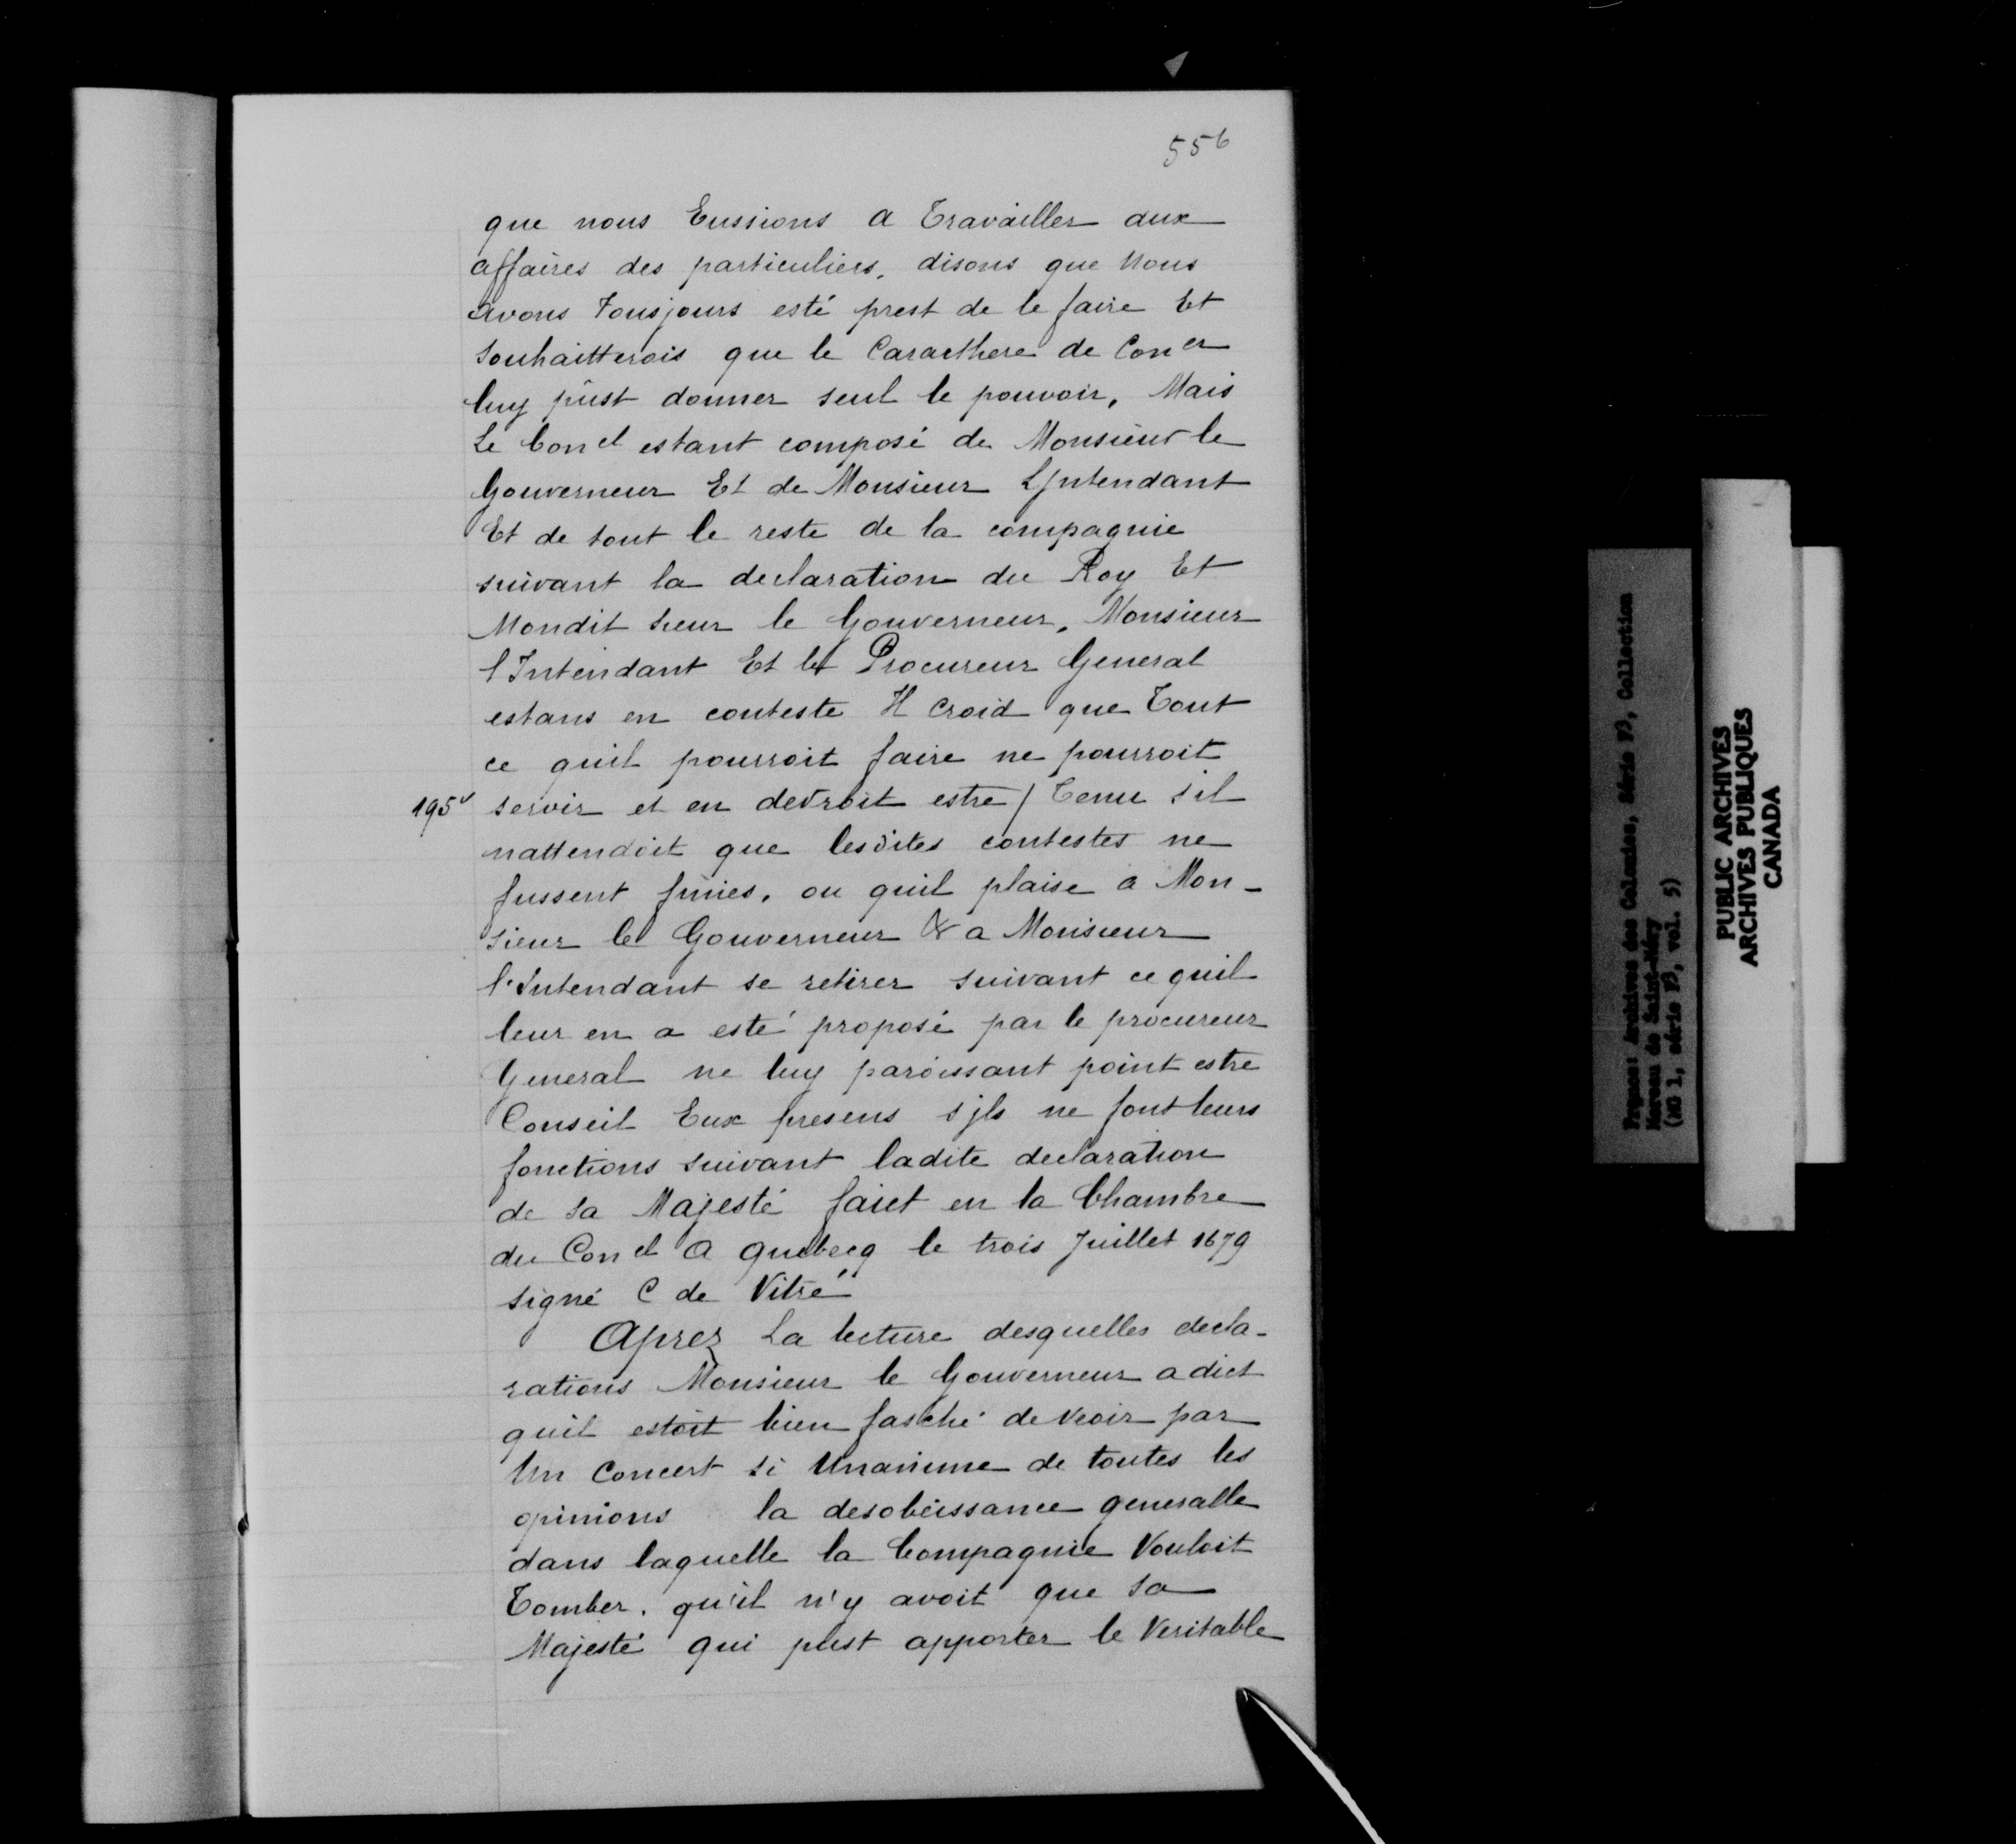 556
que nous Eussions a Travailler aux
affaires des particuliers, disons que Nous
avons Tousjours esté prest de le faire Et
souhaitterois que le Caracthere de Con er
luy pûst donner seul le pouvoir, Mais
Le Con el estant composé de Monsieur le
Gouverneur Et de Monsieur LJntendant
Et de tout le reste de la compagnie
suivant la declaration du Roy Et
Mondit sieur le Gouverneur, Monsieur
l'Intendant Et le Procureur General
estans en conteste Il Croid que Tout
ce quil pourroit faire ne pourroit
195v servir et en devroit estre / Tenu sil
nattendoit que lesdites contestes ne
fussent finies, ou quil plaise a Mon-
sieur le Gouverneur & a Monsieur
l'Intendant se retirer suivant ce quil
leur en a esté proposé par le procureur
General ne luy paroissant point estre
Conseil Eux presens s'jls ne font leurs
fonctions suivant ladite declaration
de sa Majesté faict en la Chambre
du Con el a quebecq le trois Juillet 1679
signé C de Vitré
Aprez La lecture desquelles decla-
rations Monsieur le Gouverneur a dict
quil estoit bien fasché de veoir par
Un Concert si Unanime de toutes les
opinions la desobeissance generalle
dans laquelle la Compagnie Vouloit
Tomber. qu'il n'y avoit que sa
Majesté qui pust apporter le Veritable
France: Archives des Colonies, Série F3, Collection
Moreau de Saint-Méry
(MG 1, série F3, vol. 5)
PUBLIC ARCHIVES
ARCHIVES PUBLIQUES
CANADA